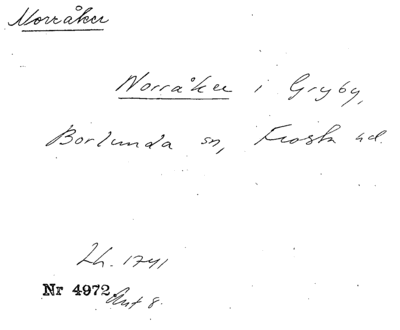 Norråker
Norråker i Gryby,
Borlunda sn, Frosta hd.
Lh. 1741
Nr 4972. Ant 8.